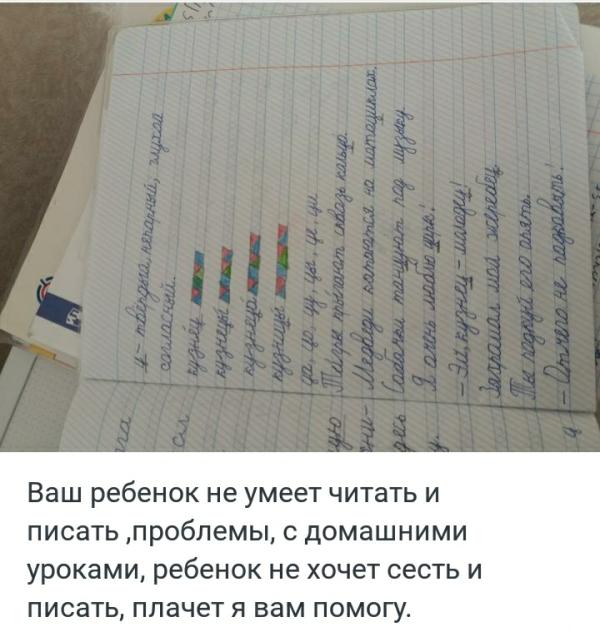 ц – твёрдый, непарный, глухой
согласный.
кузнец
кузнецы
кузнеца
кузницы
ца, цо, цу, цы, це, ци
Тигры прыгают сквозь кальцо.
Медведи катаются на матациклах.
Сабачки танцуют пад музыку.
Я очень люблю цирк!
– Эй, кузнец – молодец!
Захромал мой жеребец.
Ты подкуй его опять.
– Отчего не падковать!
Ваш ребенок не умеет читать и
писать ,проблемы, с домашними
уроками, ребенок не хочет сесть и
писать, плачет я вам помогу.